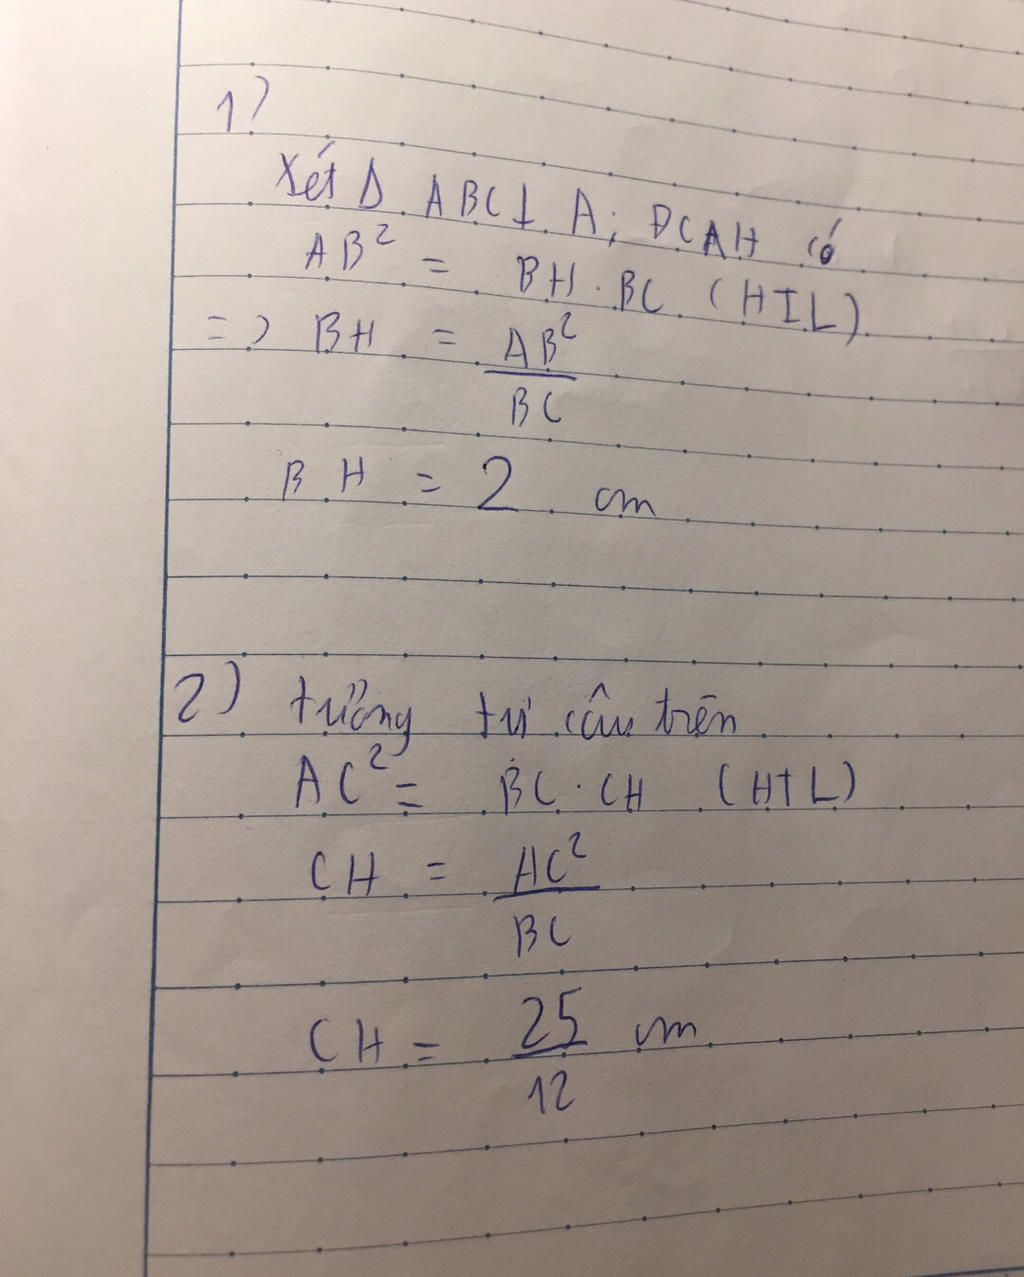 1)
Xét Δ ABC ⊥ A; ĐCAH có
AB² = BH . BC (HTL)
=> BH = AB²/BC
BH = 2 cm
2) tương tự câu trên
AC² = BC . CH (HTL)
CH = AC²/BC
CH = 25/12 cm